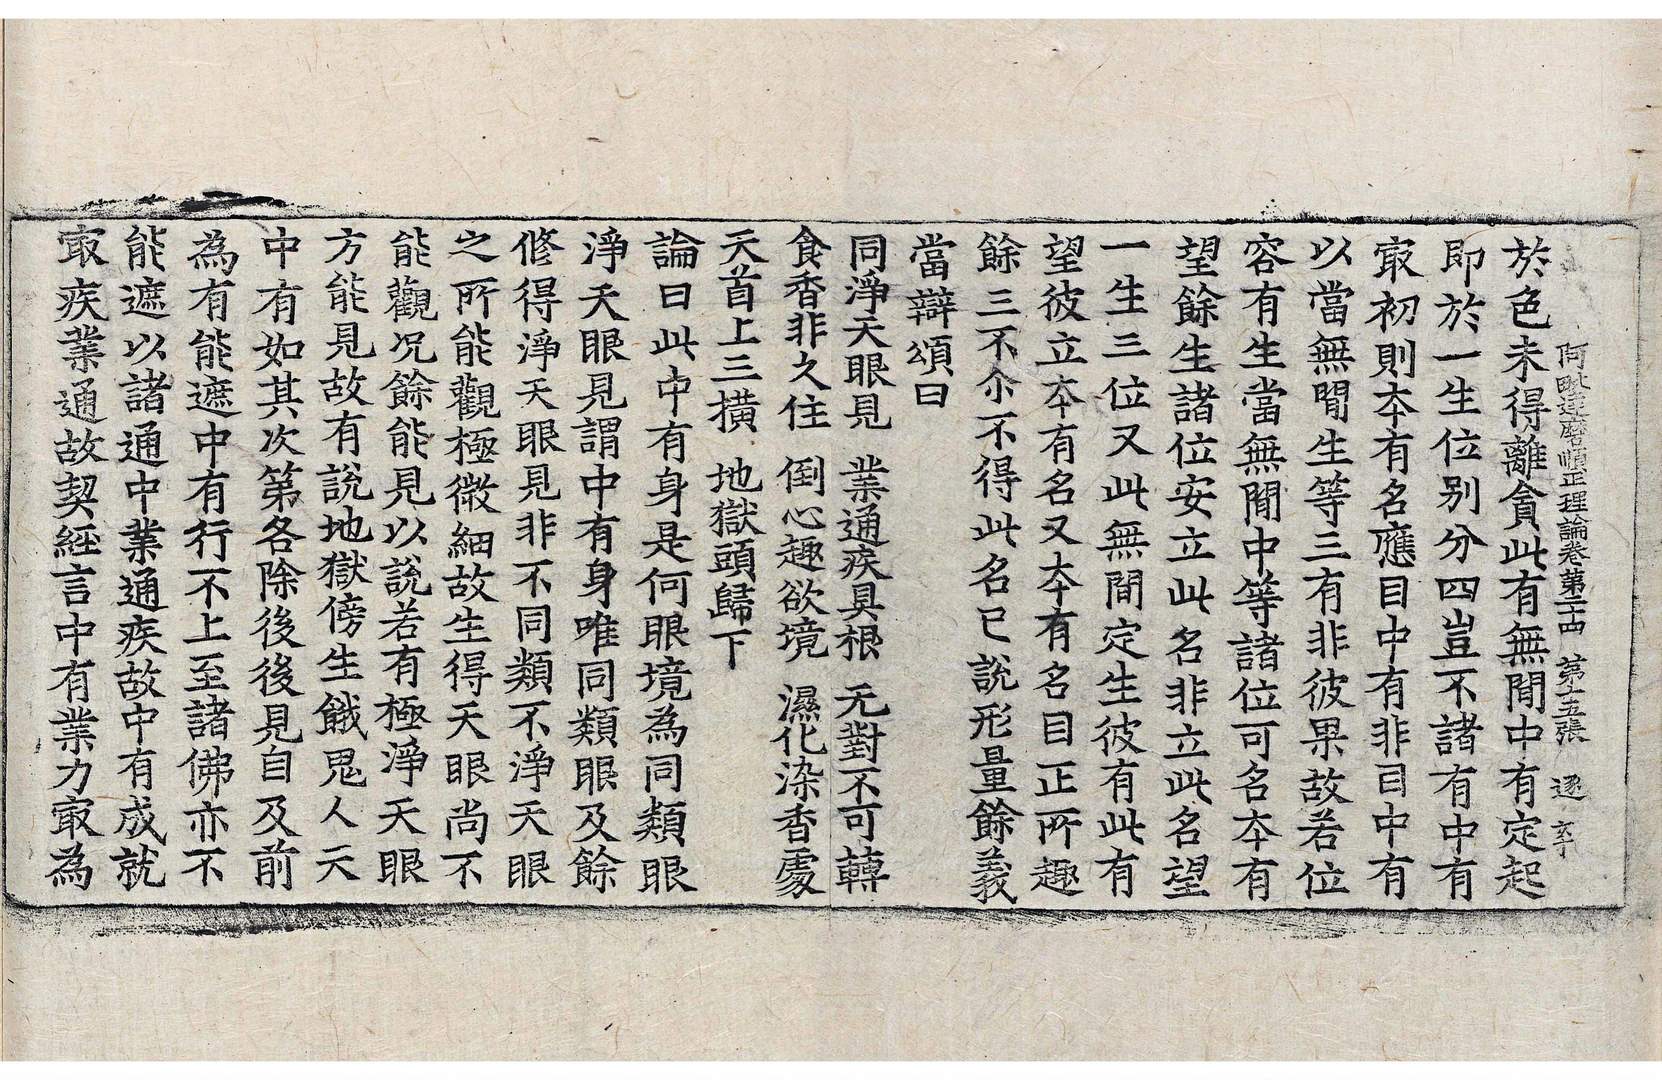 阿毗達磨順正理論卷第二十四 第十五張 逐
於色未得離貪此有無閒中有定起
即於一生位別分四豈不諸有中有
㝡初則本有名應目中有非目中有
以當無閒生等三有非彼果故若位
容有生當無閒中等諸位可名本有
望餘生諸位安立此名非立此名望
一生三位又此無閒定生彼有此有
望彼立本有名又本有名目正所趣
餘三不尒不得此名已說形量餘義
當辯頌曰
同淨天眼見 業通疾具根 无對不可轉
食香非久住 倒心趣欲境 濕化染香處
天首上三橫 地獄頭歸下
論曰此中有身是何眼境為同類眼
淨天眼見謂中有身唯同類眼及餘
修得淨天眼見非不同類不淨天眼
之所能觀極微細故生得天眼尚不
能觀況餘能見以說若有極淨天眼
方能見故有說地獄傍生餓鬼人天
中有如其次第各除後後見自及前
為有能遮中有行不上至諸佛亦不
能遮以諸通中業通疾故中有成就
㝡疾業通故契經言中有業力㝡為